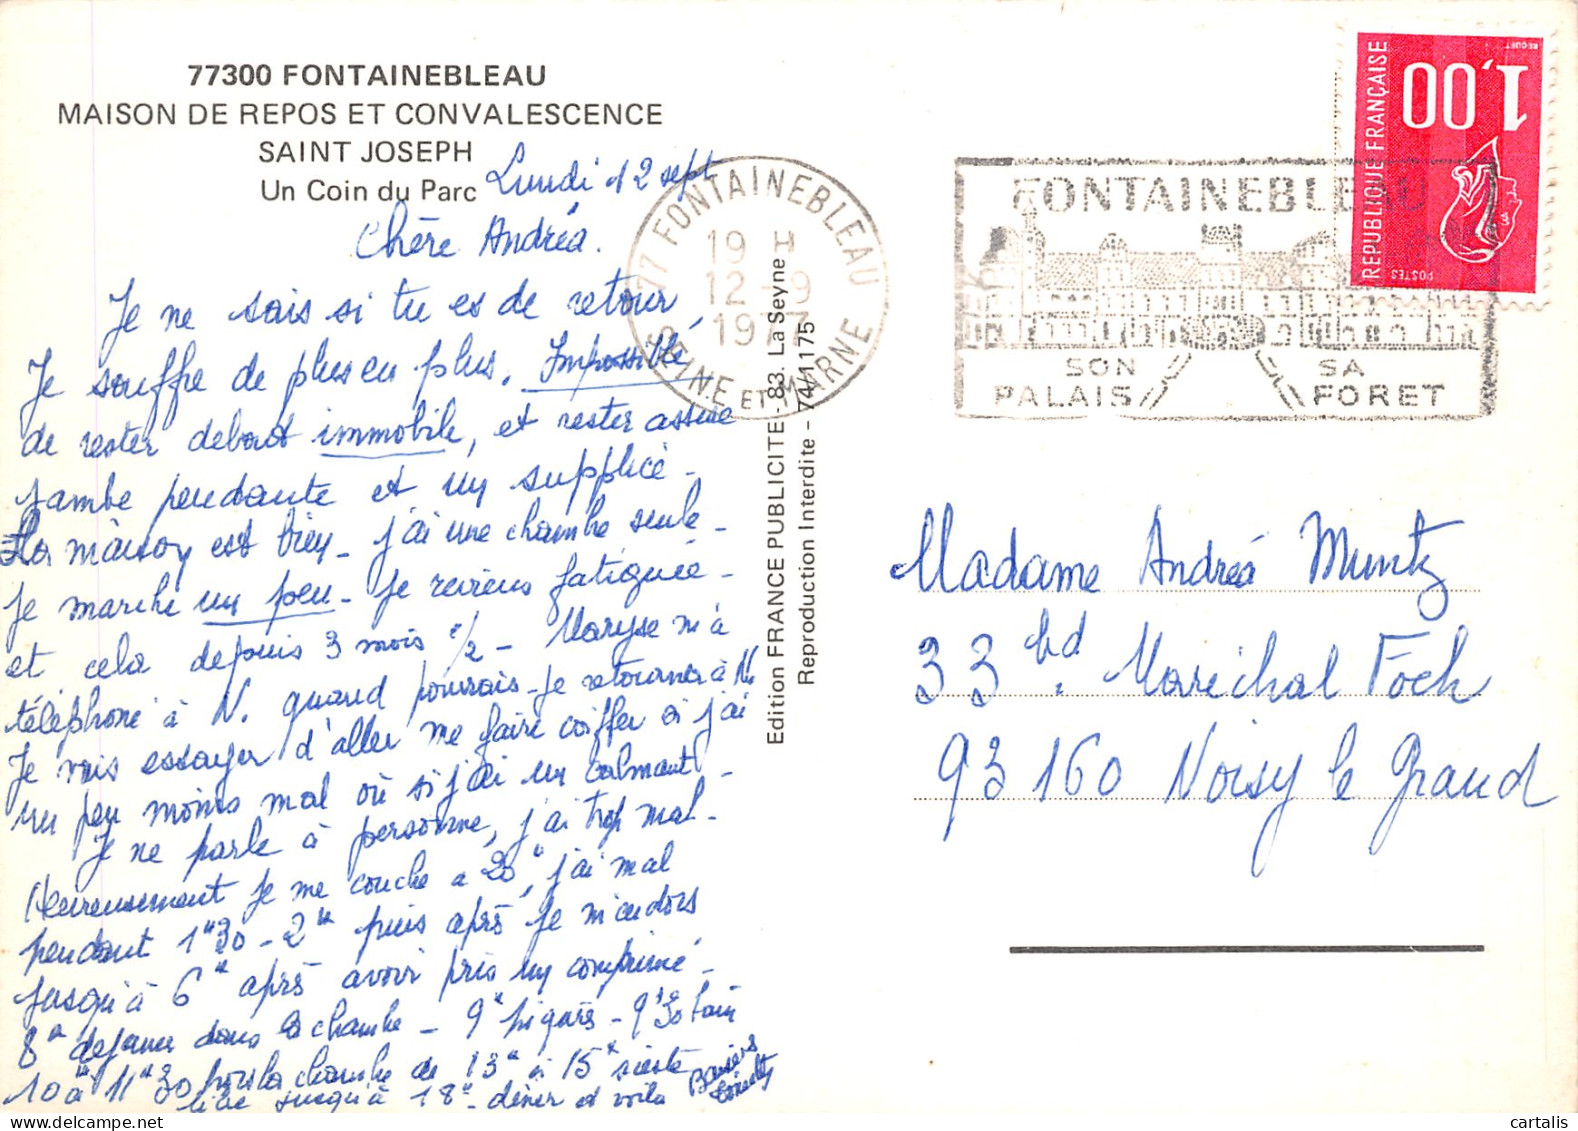 77300 FONTAINEBLEAU
MAISON DE REPOS ET CONVALESCENCE
SAINT JOSEPH
Un Coin du Parc
Lundi 12 sept
Chère Andréa.
Je ne sais si tu es de retour
Je souffre de plus en plus. Impossible
de rester debout immobile, et rester assise
jambe pendante et un supplice -
La maison est bien - j'ai une chambre seule -
Je marche un peu - Je reviens fatiguée -
et cela depuis 3 mois 1/2 - Maryse m'a
téléphoné à N. quand pourrais-je retourner à N.
Je vais essayer d'aller me faire coiffer si j'ai
un peu moins mal où si j'ai un calmant -
Je ne parle à personne, j'ai trop mal -
Heureusement je me couche a 20h, j'ai mal
pendant 1h30 - 2h puis après je m'endors
jusqu'à 6h après avoir pris un comprimé -
8h dejeuner dans la chambre - 9h piqûre - 9h30 bain
10 à 11h30 la chambre de 13h à 15h sieste
jusqu'à 18h - dîner et voila
Baisers
77 FONTAINEBLEAU
19 H
12 - 9
1977
SEINE ET MARNE
Edition FRANCE PUBLICITE - 83. La Seyne
Reproduction Interdite - 74/1175
FONTAINEBLEAU
SON PALAIS
SA FORET
1,00
REPUBLIQUE FRANÇAISE
POSTES
BEQUET
Madame Andréa Muntz
33 bd. Maréchal Foch
93160 Noisy le Grand
cartalis
cartalis.com